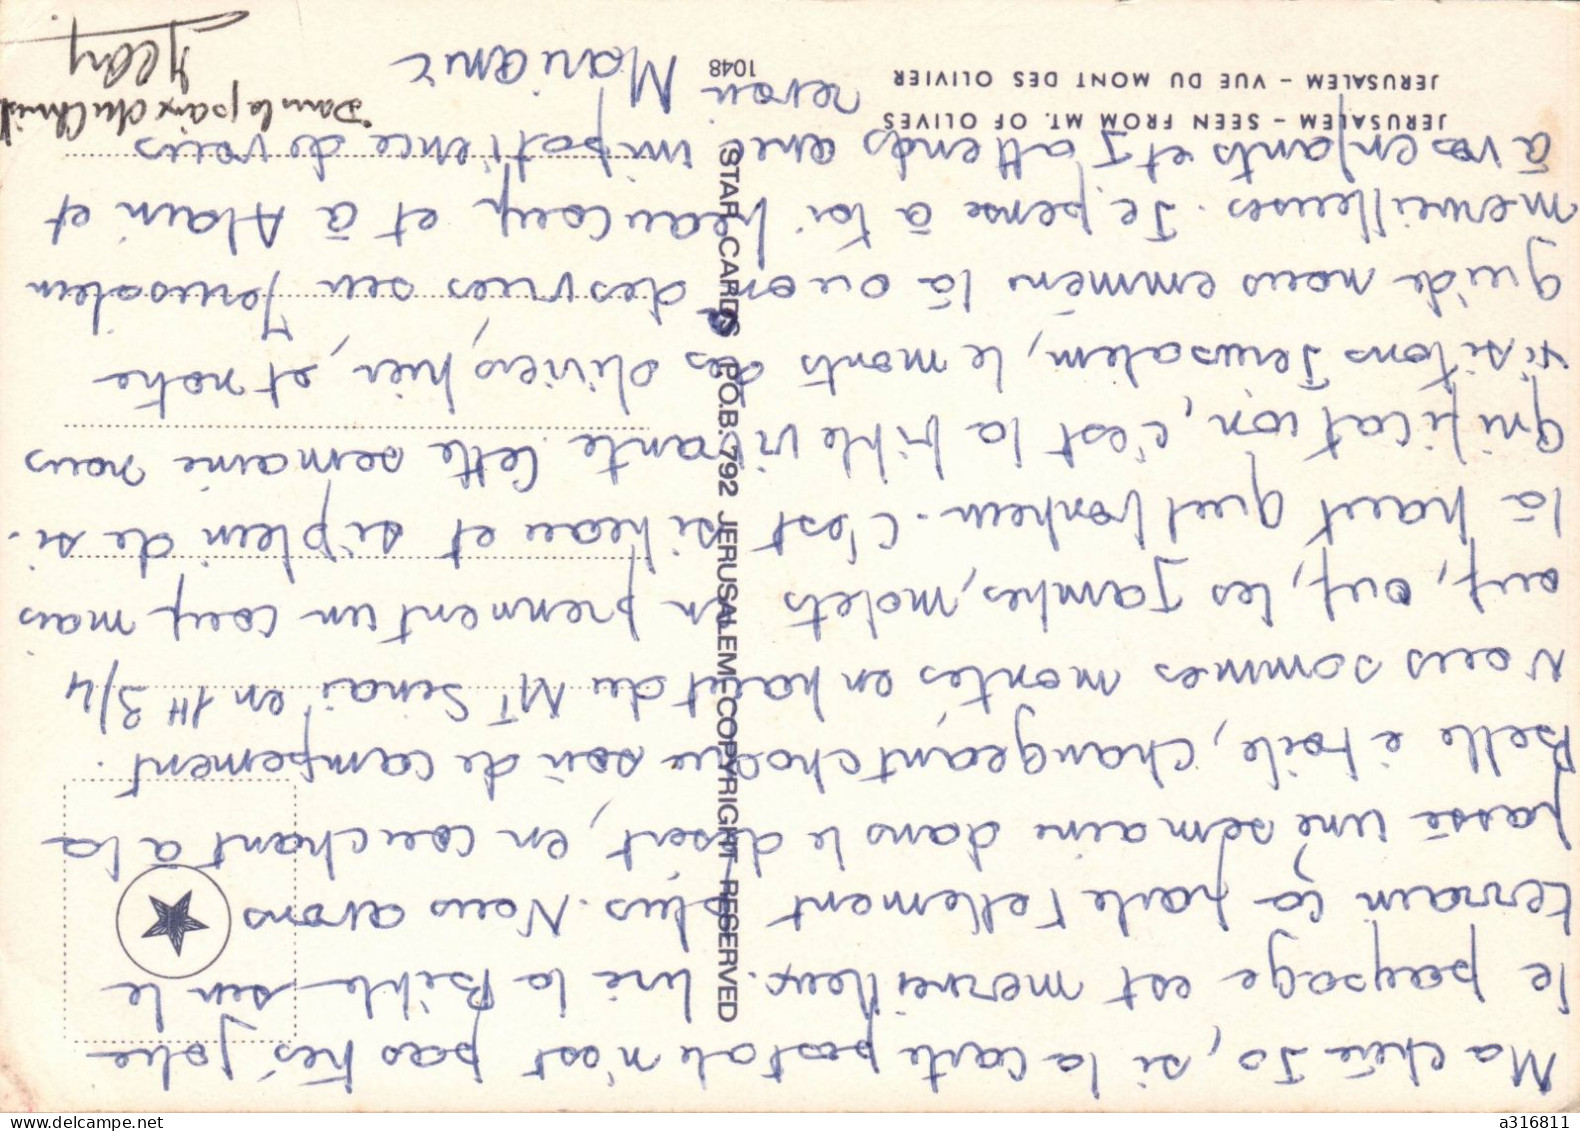 Ma chère Jo, si la carte postale n'est pas très jolie
le paysage est merveilleux. Lire la Bible sur le
terrain ça parle tellement plus. Nous avons
passé une semaine dans le désert, en couchant à la
Belle étoile, changeant chaque soir de campement.
Nous sommes montés en haut du MT Sinaï en 1H 3/4
ouf, ouf, les jambes, molets en prennent un coup mais
là haut quel bonheur. C'est si beau et si plein de si.
gnification, c'est la bible vivante. Cette semaine nous
visitons Jerusalem, le monts des oliviers, hier, et notre
guide nous emmène là ou on a des vues sur Jerusalem
merveilleuses. Je pense à toi beaucoup et à Alain et
à vos enfants et J'attends avec impatience de vous
revoir Marianne
Dans la paix du Christ
JERUSALEM – SEEN FROM MT. OF OLIVES
JERUSALEM – VUE DU MONT DES OLIVIER
1048
STAR CARDS P.O.B. 792 JERUSALEM COPYRIGHT RESERVED
a316811